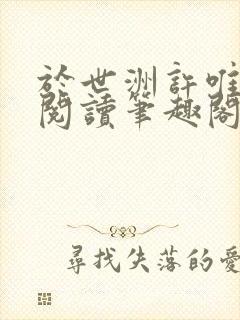 於世洲許唯
閱讀筆趣閣
尋找失落的愛